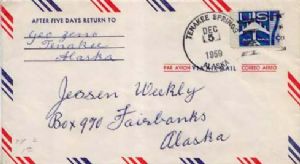 AFTER FIVE DAYS RETURN TO
Geo Zeno
Tenakee
Alaska
TENAKEE SPRINGS
DEC
1959
ALASKA
PAR AVION VIA AIR MAIL CORREO AEREO
Jessen Weekly
Box 970 Fairbanks
Alaska